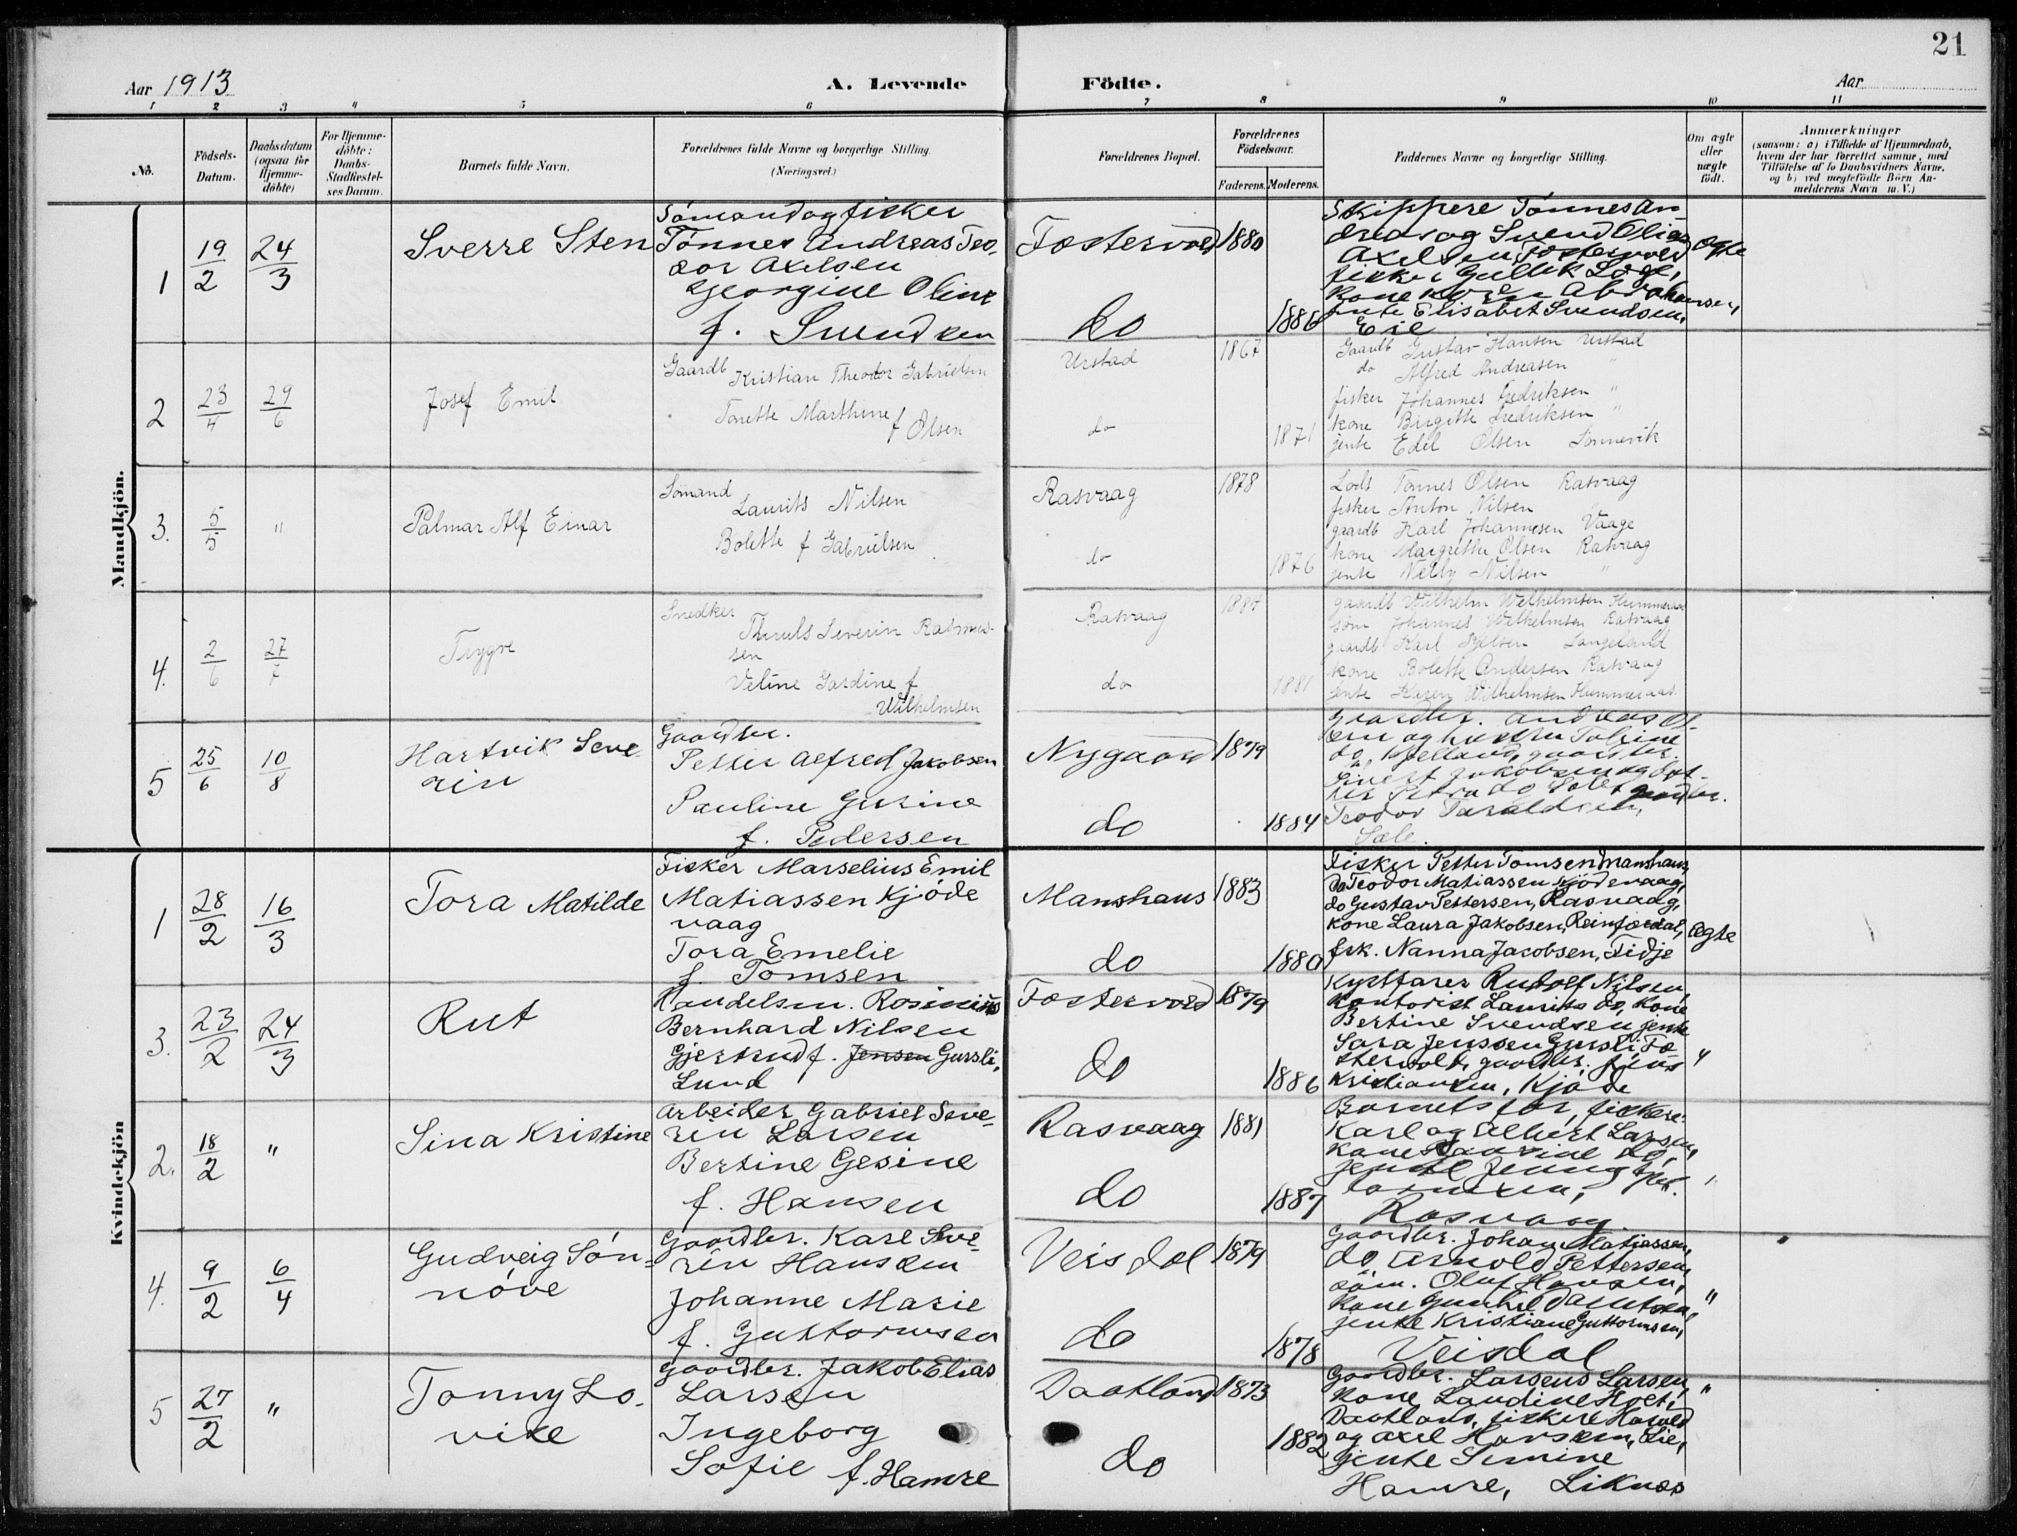 21
Aar 1913
A. Levende
Födte.
Aar
1 2 3 4 5 6 7 8 9 10 11
No.
Födsels-Datum.
Daabsdatum (ogsaa for Hjemmedöbte)
For Hjemmedöbte: Daabs-Stadfæstelses Datum.
Barnets fulde Navn.
Forældrenes fulde Navne og borgerlige Stilling. (Næringsvei.)
Forældrenes Bopæl.
Forældrenes Födselsaar.
Faderens. Moderens.
Faddernes Navne og borgerlige Stilling.
Om ægte eller uægte födt.
Anmærkninger
(saasom: a) i Tilfælde af Hjemmedaab,
hvem der har forrettet samme, med
Tilföielse af to Daabsvidners Navne,
og b) ved uægtefödte Börn An-
melderens Navn m. V.)
Mandkjön.
1 19/2 24/3 Sverre Sten
Sömand og fisker
Tönnes Andreas Teo-
dor Axelsen
Georgine Oline
f. Svendsen
Fostervold 1880
do 1886
Skippere Tönnes An-
dreas og Svend Olias
Axelsen, Fostervold
fisker Gullik Loge,
kone Abrahamsen,
jente Elisabet Svendsen,
Eie
ægte
2 23/4 29/6 Josef Emil
Gaardb Kristian Theodor Gabrielsen
Tonette Marthine f Olsen
Urstad 1867
do 1871
Gaardb Gustav Hansen Urstad
do Alfred Andreasen
fisker Johannes Fredriksen "
kone Birgitte Fredriksen "
jente Edel Olsen Sönnevik
3. 5/5 " Palmar Alf Einar
Sömand
Laurits Nilsen
Bolette f Gabrielsen
Rasvaag 1878
do 1876
Lods Tönnes Olsen Rasvaag
fisker Anton Nilsen
gaardb Karl Johannesen Vaage
kone Margrethe Olsen Rasvaag
jente Nelly Nilsen "
4. 2/6 27/7 Trygve
Snedker
Severin Rasmus-
sen
Veline Gardine f
Wilhelmsen
Rasvaag
do 1881
gaardb Wilhelm Wilhelmsen
söm Johannes Wilhelmsen Rasvaag
gaardb Karl Langeland
kone Bolette Andersen Rasvaag
jente Karen Wilhelmsen
5 25/6 10/8 Hartvik Seve-
rin
Gaardbr.
Petter Alfred Jakobsen
Pauline Gurine
f. Pedersen
Nygaard 1879
do 1884
Gaardbr. Andreas
og hustru Tobine
do, gaardbr.
Sivert Jakobsen og
Petra do Sæle, gaardbr.
Teodor Taraldsen,
Sæle.
Kvindekjön
1 28/2 16/3 Tora Matilde
Fisker Marselius Emil
Matiassen Kjöde
vaag
Tora Emelie
f. Tomsen
Manshaus 1883
do 1880
Fisker Petter Tomsen Manshaus,
do Teodor Matiassen Kjödevaag,
do Gustav Pettersen, Rasvaag,
kone Laura Jakobsen, Reinfardal,
frk. Nanna Jacobsen, Fidje
ægte
3. 23/2 24/3 Rut
Handelsm. Rosinius
Bernhard Nilsen
Gjertrud f. Jensen Gursli,
Lund
Fostervold 1879
do 1886
Kystfarer Rudolf Nilsen,
kontorist Laurits do, kone
Bertine Svendsen, jente
Sara Jenssen Gursli, Fo-
stervold, gaardbr. Jens
Kristiansen, Kjöde
"
2. 18/2 " Sina Kristine
Arbeider Gabriel Seve-
rin Larsen
Bertine Gesine
f. Hansen
Rasvaag 1881
do 1887
Barnets far, fiskere
Karl og Albert Larsen,
kone do,
jente Jenny
Rasvaag
"
4. 9/2 6/4 Gudveig Sön-
növe
Gaardbr. Karl Seve-
rin Hansen
Johanne Marie
f. Guttormsen
Veisdal 1879
do 1878
Gaardbr. Johan Matiassen,
do Arnold Pettersen,
söm. Oluf Hansen,
kone Gunhil Danielsen,
jente Kristiane Guttormsen,
Veisdal
"
5 27/2 " Tonny Lo-
vise
Gaardbr. Jakob Elias
Larsen
Ingeborg
Sofie f. Hamre
Daatland 1873
do 1882
Gaardbr. Larsens Larsen,
kone Laudine
Daatland, fiskere Harald
og Axel Hansen, Lie,
jente Semine
Hamre, Liknes
"